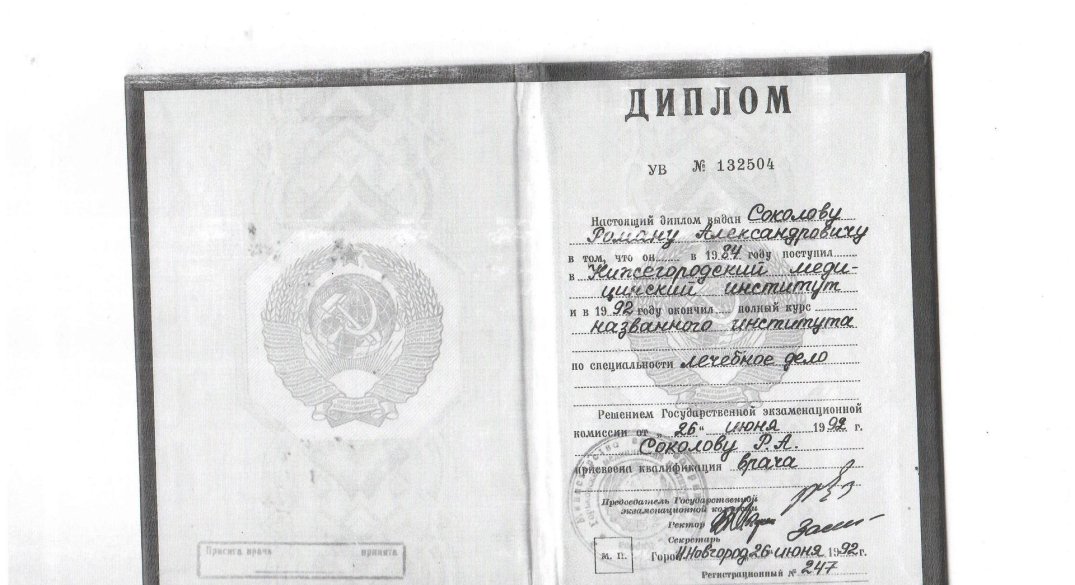 Присяга врача принята
ДИПЛОМ
УВ № 132504
Настоящий диплом выдан Соколову
Роману Александровичу
в том, что он в 1984 году поступил
в Нижегородский меди-
цинский институт
и в 1992 году окончил полный курс
названного института
по специальности лечебное дело
Решением Государственной экзаменационной
комиссии от „ 26 “ июня 1992 г.
Соколову Р.А.
присвоена квалификация врача
Председатель Государственной
экзаменационной комиссии
Ректор
Секретарь
М. П.
Город Н.Новгород 26 июня 1992 г.
Регистрационный № 247